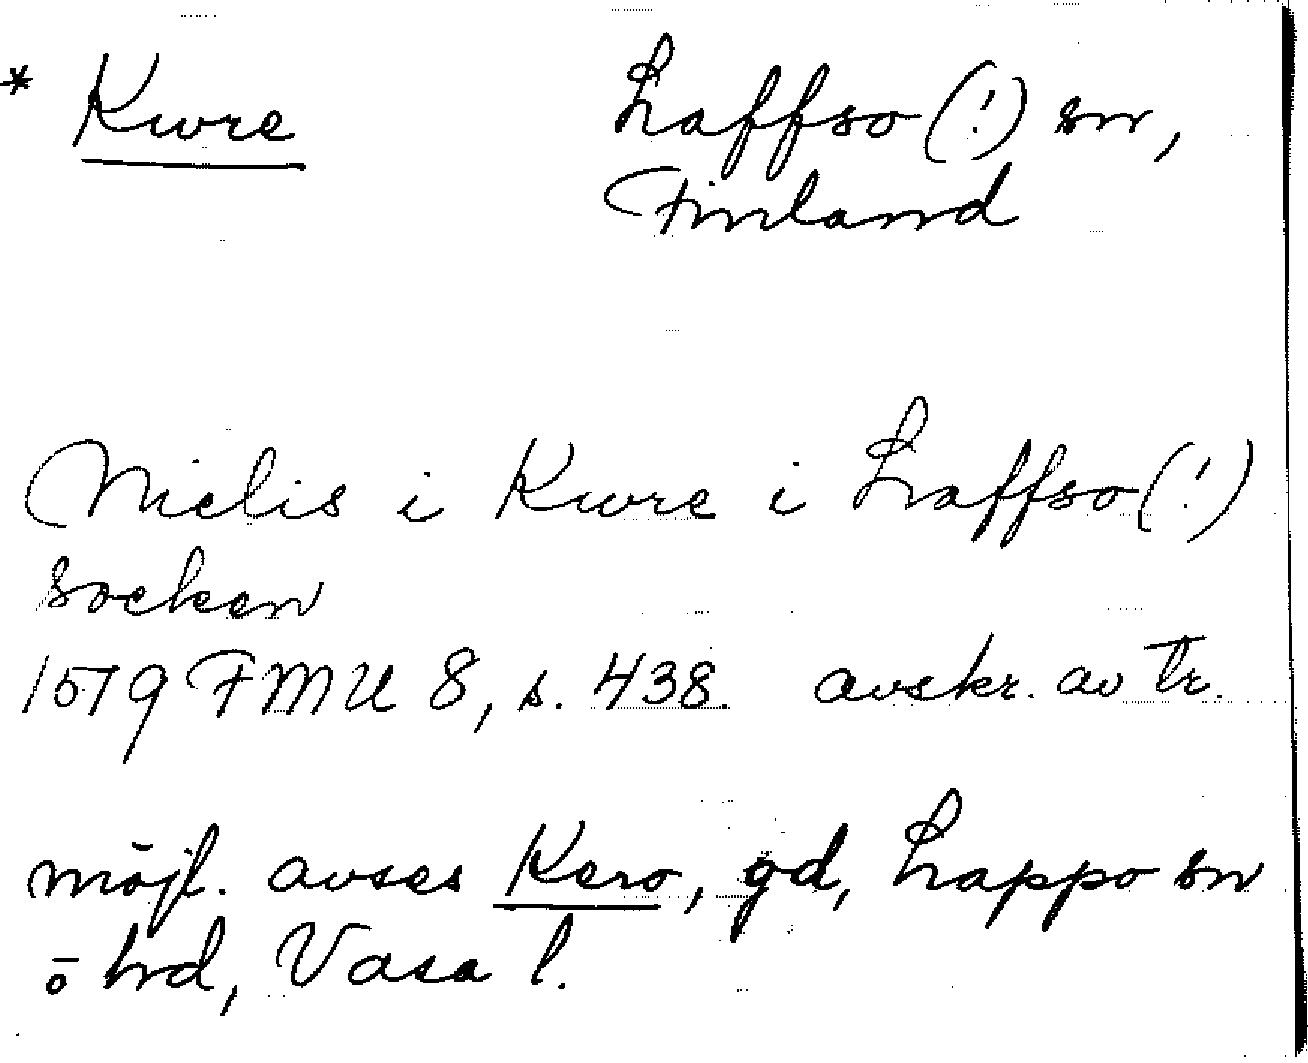 * Kwre Laffso (!) sn,
Finland
Nielis i Kwre i Laffso (!)
socken
1519 FMU 8, s. 438. avskr. av tr.
möjl. avses Kero, gd, Lappo sn
o hrd, Vasa l.